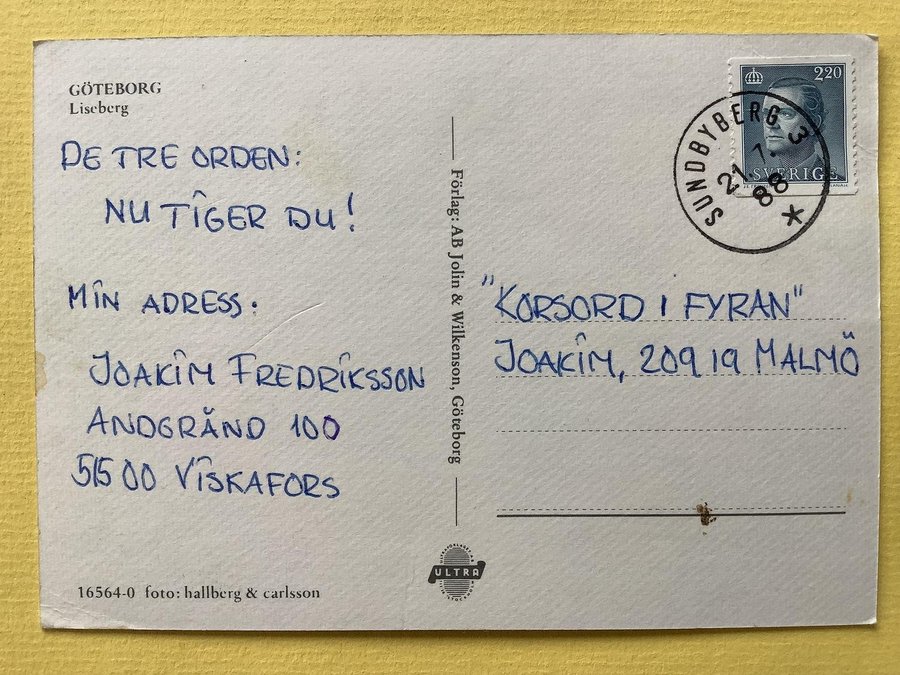 GÖTEBORG
Liseberg
DE TRE ORDEN:
NU TIGER DU!
MIN ADRESS:
JOAKIM FREDRIKSSON
ANDGRÄND 100
515 00 VISKAFORS
16564-0 foto: hallberg & carlsson
Förlag: AB Jolin & Wilkenson, Göteborg
ULTRA
2.20
SVERIGE
SUNDBYBERG 3
21.7.
88
"KORSORD I FYRAN"
JOAKIM, 209 19 MALMÖ